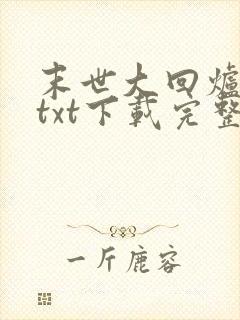 末世大回爐
txt下載完整
一斤鹿容